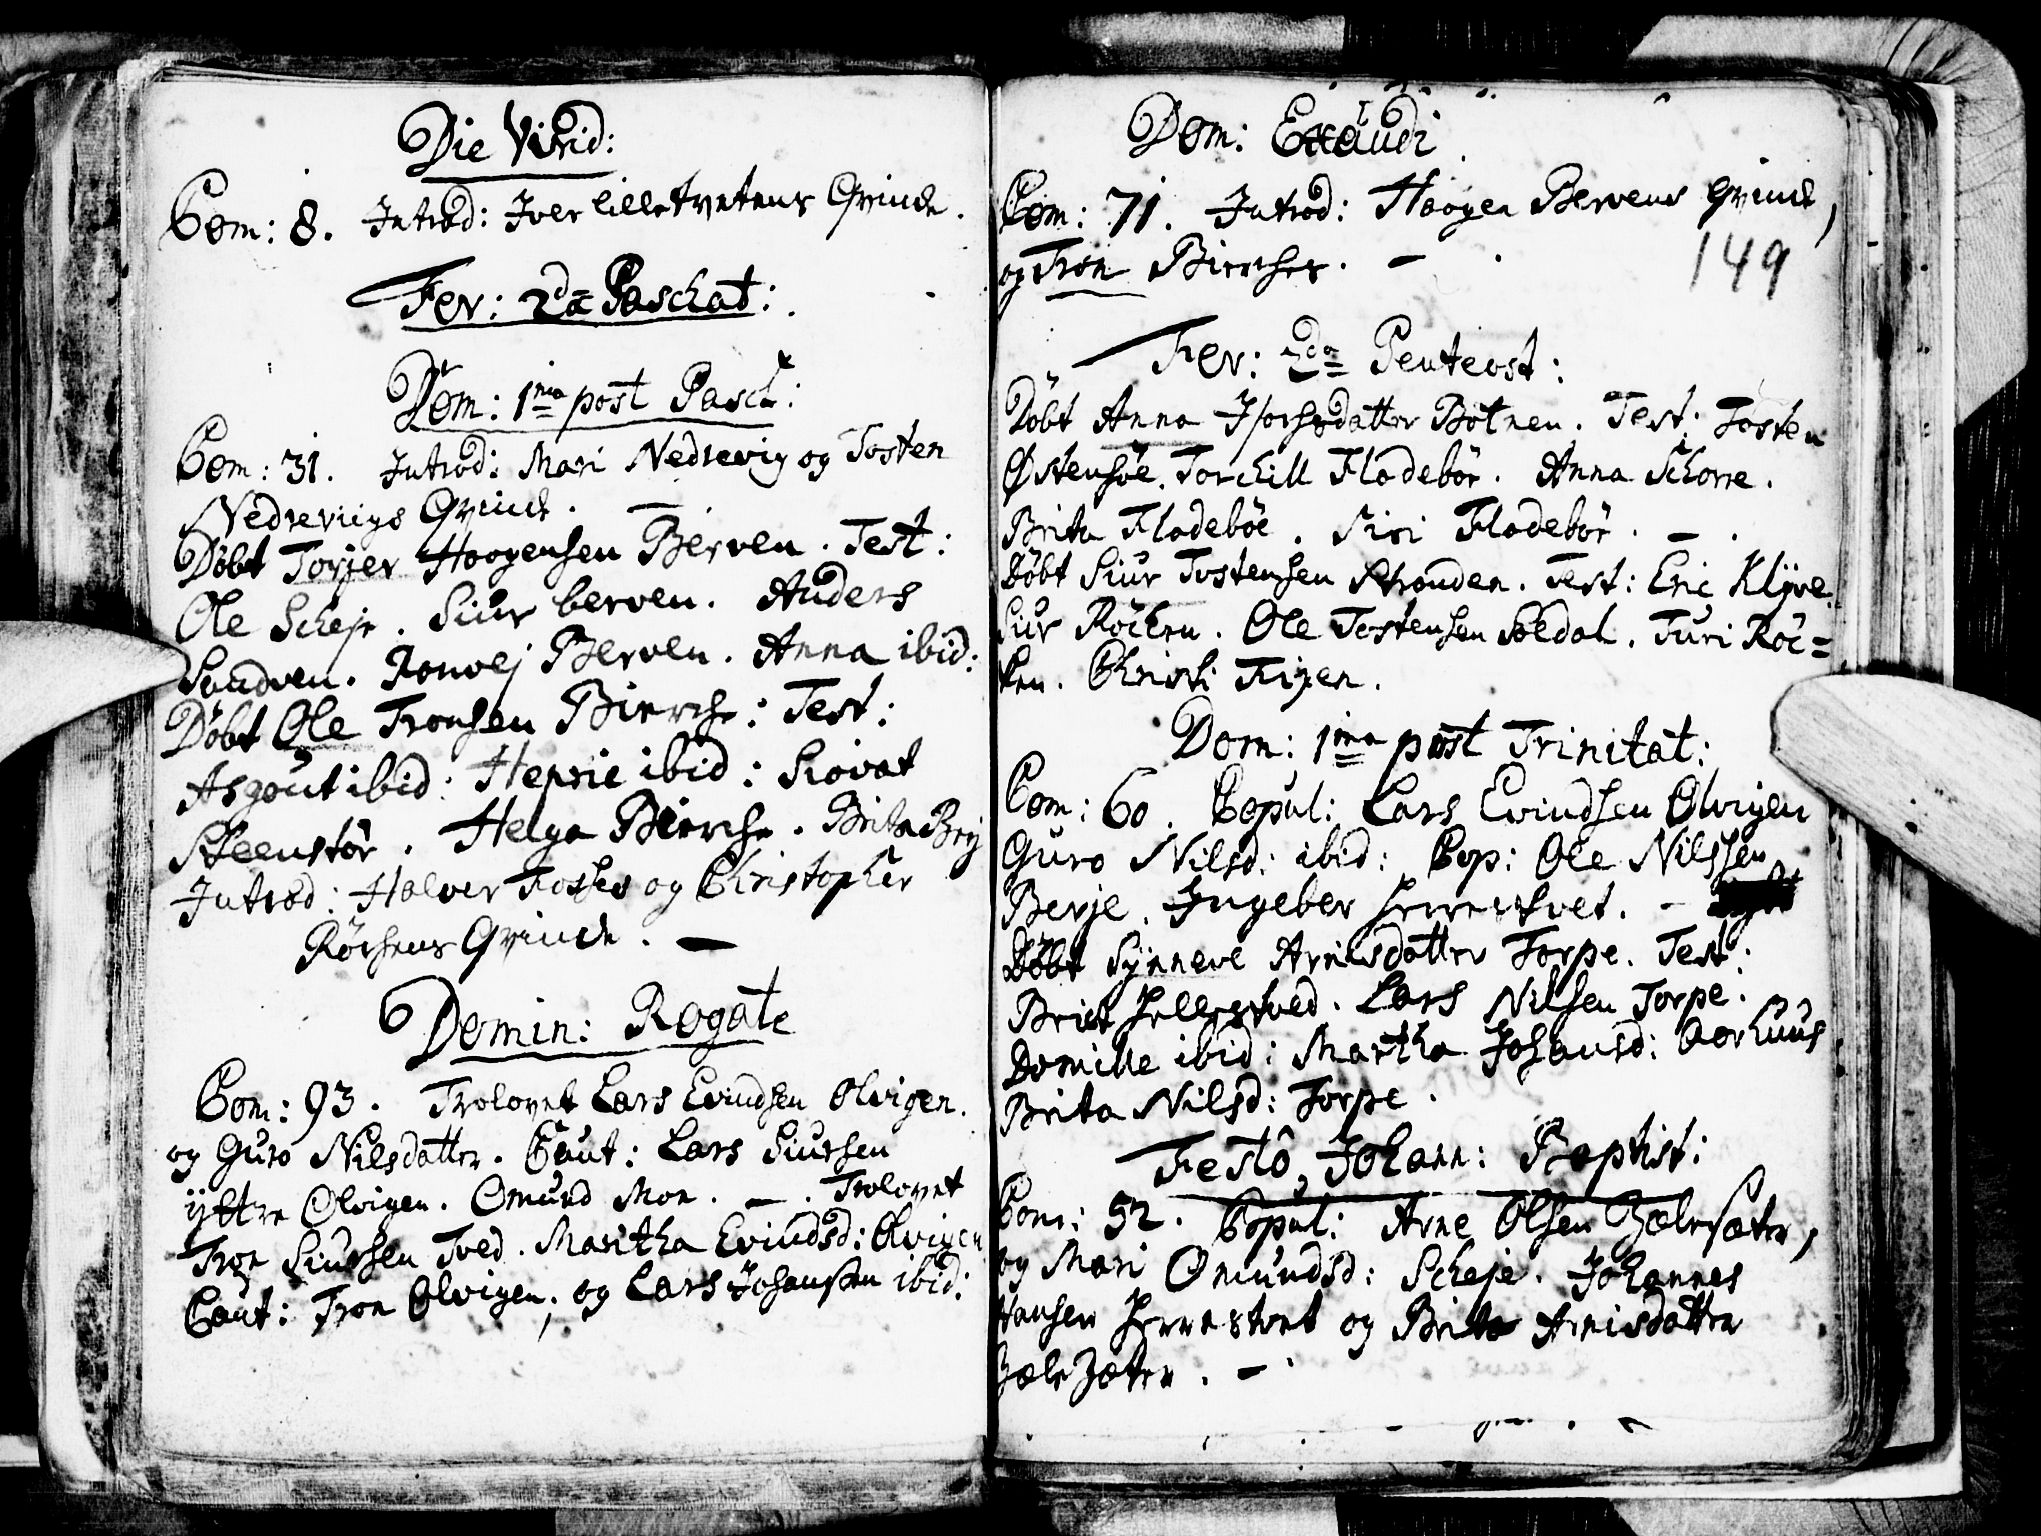 Die Virid:
Com: 8. Introd: Iver lilletvetens Qvinde.
Fer: 2da Paschat:
Dom: 1ma post Pasch:
Com: 31. Introd: Mari Nedrevig og Tosten
Nedrevigs Qvinde. —
Döbt Torjer Haagensen Berven. Test:
Ole Scheje. Siur berven. Anders
Sandven. Ronvej Berven. Anna ibid:
Döbt Ole Tronsen Birche: Test:
Asgout ibid: Hepsie ibid: Siovat
Steenstör. Helga Birche. Brita Brij
Introd: Halver Fosses og Christopher
Röchens Qvinde. —
Domin: Rogate
Com: 93. Trolovet Lars Evindsen Olvigen.
og Guro Nilsdatter. Caut: Lars Siursen
ÿttre Olvigen. Omund Moe. —. Trolovet
Tron Siursen Tved. Maritha Evindsd: Olvigen
Caut: Tron Olvigen, og Lars Johansen ibid:
Dom: Exaudi
Com: 71. Introd: Haagen Bervens Qvinde,
og Tron Birches. —
149
Fer: 2da Pentecost:
Döbt Anna Isachsdatter Botnen. Test: Tosten
Östensöe. Torchill Fladebör. Anna Schorre.
Brita Fladeböe. Siri Fladebör. —
Döbt Siur Tostensen Stranden. Test: Eric Klÿve.
Siur Röchen. Ole Tostensen Soldal. Turi Röc=
ken. Christi Fixen.
Dom: 1ma post Trinitat:
Com: 60. Copul: Lars Evindsen Olvigen
Guro Nilsd: ibid: Cop: Ole Nilssen
Berje. Ingeber Herrestvet. —
Döbt Sÿnneve Arnesdatter Torpe. Test:
Brita Hellestved. Lars Nilsen Torpe.
Domille ibid: Martha Johansd: Aarhuus
Brita Nilsd: Torpe.
Festo Johann: Baptist:
Com: 52. Copul: Arne Olsen Zæle sæter,
og Mari Omundsd: Scheje. Johannes
Hansen Herrestvet og Brita Arnisdatter
Zæle Zæter. —